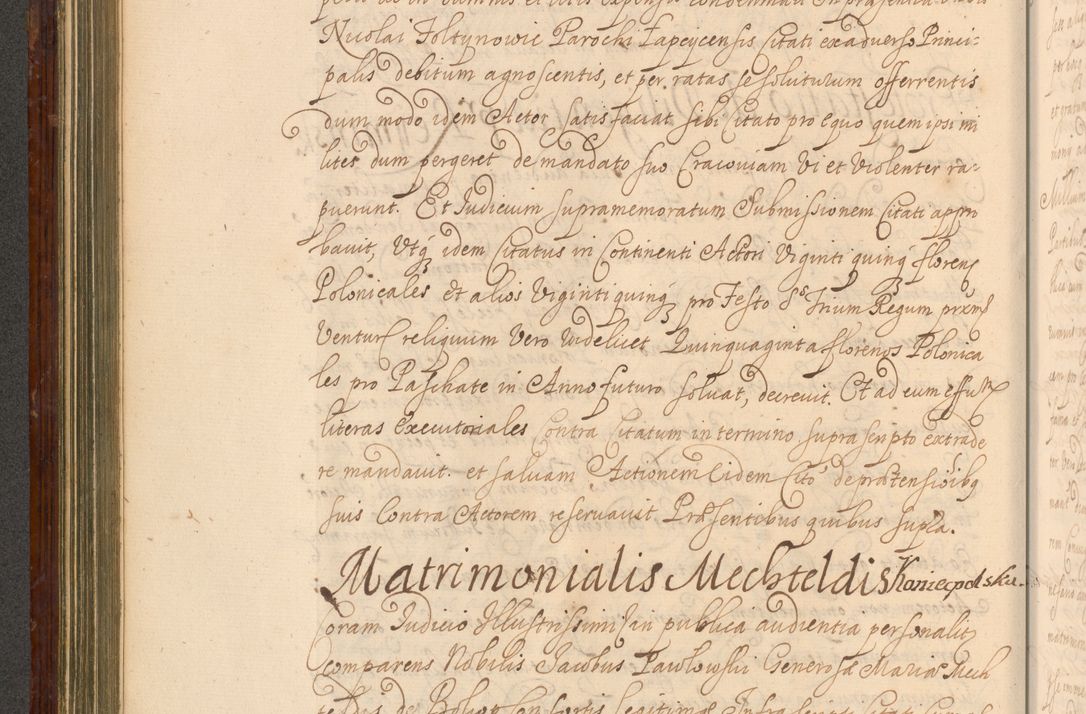 Nicolai Foltynowic Parochi Łapcycensis Citati ex adverso Princi-
palis debitum agnoscentis, et per ratas se soluturum offerrentis
dum modo idem Actor satis faciat sibi Citato pro equo quem ipsi mi
lites dum pergeret de mandato suo Cracoviam Vi et Violenter ra-
puerunt. Et Iudicium supramemoratum Submissionem Citati appro
bavit, Utq idem Citatus in Continenti Actori Viginti quinq floren
Polonicales Et alios Viginti quinq pro Festo SS Trium Regum prox
Ventur reliquum Vero Videlicet Quinquaginta florenos Polonica
les pro Paschate in Anno futuro solvat, decrevit. Et ad eum effum
literas Executoriales Contra Citatum in termino supra scripto extrade
re mandavit. et salvam Actionem Eidem Citto de prætensioibq
suis Contra Actorem reservavit Præsentibus quibus supra.
Matrimonialis Mechteldis Koniecpolska.
Coram Iudicio Illustrissimi in publica audientia personalit
comparens Nobilis Iacobus Pawłowski Generosæ Mariæ Mech